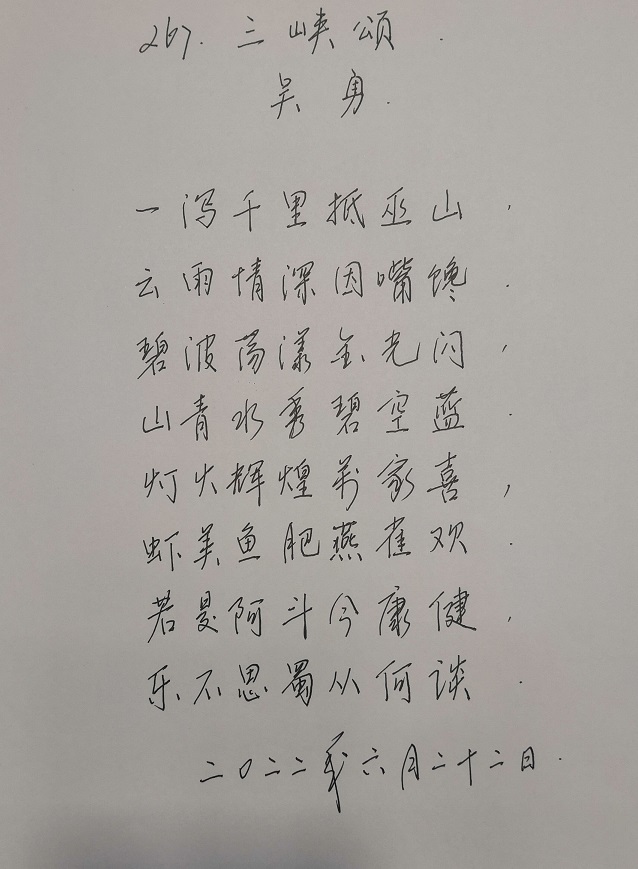 267. 三峡颂.
吴勇.
一泻千里抵巫山,
云雨情深因嘴馋.
碧波荡漾金光闪,
山青水秀碧空蓝.
灯火辉煌万家喜,
虾美鱼肥燕雀欢.
若是阿斗今康健,
乐不思蜀从何谈.
二〇二二年六月二十二日.